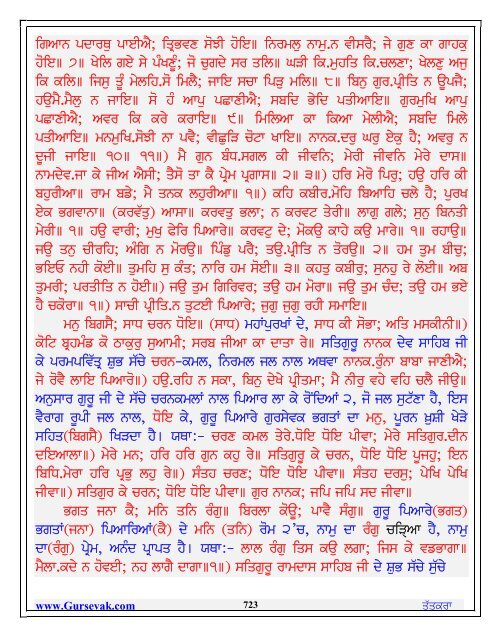 ਗਿਆਨ ਪਦਾਰਥੁ ਪਾਈਐ; ਤ੍ਰਿਭਵਣ ਸੋਝੀ ਹੋਇ॥ ਨਿਰਮਲੁ ਨਾਮੁ.ਨ ਵੀਸਰੈ; ਜੇ ਗੁਣ ਕਾ ਗਾਹਕੁ
ਹੋਇ॥ ੭॥ ਖੇਲਿ ਗਏ ਸੇ ਪੰਖਣੂੰ; ਜੋ ਚੁਗਦੇ ਸਰ ਤਲਿ॥ ਘੜੀ ਕਿ.ਮੁਹਤਿ ਕਿ.ਚਲਣਾ; ਖੇਲਣੁ ਅਜੁ
ਕਿ ਕਲਿ॥ ਜਿਸੁ ਤੂੰ ਮੇਲਹਿ.ਸੋ ਮਿਲੈ; ਜਾਇ ਸਚਾ ਪਿੜੁ ਮਲਿ॥ ੮॥ ਬਿਨੁ ਗੁਰ.ਪ੍ਰੀਤਿ ਨ ਊਪਜੈ;
ਹਉਮੈ.ਮੈਲੁ ਨ ਜਾਇ॥ ਸੋ ਹੰ ਆਪੁ ਪਛਾਣੀਐ; ਸਬਦਿ ਭੇਦਿ ਪਤੀਆਇ॥ ਗੁਰਮੁਖਿ ਆਪੁ
ਪਛਾਣੀਐ; ਅਵਰ ਕਿ ਕਰੇ ਕਰਾਇ॥ ੯॥ ਮਿਲਿਆ ਕਾ ਕਿਆ ਮੇਲੀਐ; ਸਬਦਿ ਮਿਲੇ
ਪਤੀਆਇ॥ ਮਨਮੁਖਿ.ਸੋਝੀ ਨਾ ਪਵੈ; ਵੀਛੁੜਿ ਚੋਟਾ ਖਾਇ॥ ਨਾਨਕ.ਦਰੁ ਘਰੁ ਏਕੁ ਹੈ; ਅਵਰੁ ਨ
ਦੂਜੀ ਜਾਇ॥ ੧੦॥ ੧੧॥) ਮੈ ਗੁਨ ਬੰਧ.ਸਗਲ ਕੀ ਜੀਵਨਿ; ਮੇਰੀ ਜੀਵਨਿ ਮੇਰੇ ਦਾਸ॥
ਨਾਮਦੇਵ.ਜਾ ਕੇ ਜੀਅ ਐਸੀ; ਤੈਸੋ ਤਾ ਕੈ ਪ੍ਰੇਮ ਪ੍ਰਗਾਸ॥ ੨॥ ੩॥) ਹਰਿ ਮੇਰੋ ਪਿਰੁ; ਹਉ ਹਰਿ ਕੀ
ਬਹੁਰੀਆ॥ ਰਾਮ ਬਡੇ; ਮੈ ਤਨਕ ਲਹੁਰੀਆ॥ ੧॥) ਕਹਿ ਕਬੀਰ.ਮੋਹਿ ਬਿਆਹਿ ਚਲੇ ਹੈ; ਪੁਰਖ
ਏਕ ਭਗਵਾਨਾ॥ (ਕਰਵੱਤੁ) ਆਸਾ॥ ਕਰਵਤੁ ਭਲਾ; ਨ ਕਰਵਟ ਤੇਰੀ॥ ਲਾਗੁ ਗਲੇ; ਸੁਨੁ ਬਿਨਤੀ
ਮੇਰੀ॥ ੧॥ ਹਉ ਵਾਰੀ; ਮੁਖੁ ਫੇਰਿ ਪਿਆਰੇ॥ ਕਰਵਟੁ ਦੇ; ਮੋਕਉ ਕਾਹੇ ਕਉ ਮਾਰੇ॥ ੧॥ ਰਹਾਉ॥
ਜਉ ਤਨੁ ਚੀਰਹਿ; ਅੰਗਿ ਨ ਮੋਰਉ॥ ਪਿੰਡੁ ਪਰੈ; ਤਉ.ਪ੍ਰੀਤਿ ਨ ਤੋਰਉ॥ ੨॥ ਹਮ ਤੁਮ ਬੀਚੁ;
ਭਇਓ ਨਹੀ ਕੋਈ॥ ਤੁਮਹਿ ਸੁ ਕੰਤ; ਨਾਰਿ ਹਮ ਸੋਈ॥ ੩॥ ਕਹਤੁ ਕਬੀਰੁ; ਸੁਨਹੁ ਰੇ ਲੋਈ॥ ਅਬ
ਤੁਮਰੀ; ਪਰਤੀਤਿ ਨ ਹੋਈ॥) ਜਉ ਤੁਮ ਗਿਰਿਵਰ; ਤਉ ਹਮ ਮੋਰਾ॥ ਜਉ ਤੁਮ ਚੰਦ; ਤਉ ਹਮ ਭਏ
ਹੈ ਚਕੋਰਾ॥ ੧॥) ਸਾਚੀ ਪ੍ਰੀਤਿ.ਨ ਤੁਟਈ ਪਿਆਰੇ; ਜੁਗੁ ਜੁਗੁ ਰਹੀ ਸਮਾਇ॥
ਮਨੁ ਬਿਗਸੈ; ਸਾਧ ਚਰਨ ਧੋਇ॥ (ਸਾਧ) ਮਹਾਂਪੁਰਖਾਂ ਦੇ, ਸਾਧ ਕੀ ਸੋਭਾ; ਅਤਿ ਮਸਕੀਨੀ॥)
ਕੋਟਿ ਬ੍ਰਹਮੰਡ ਕੋ ਠਾਕੁਰੁ ਸੁਆਮੀ; ਸਰਬ ਜੀਆ ਕਾ ਦਾਤਾ ਰੇ॥ ਸਤਿਗੁਰੂ ਨਾਨਕ ਦੇਵ ਸਾਹਿਬ ਜੀ
ਕੇ ਪਰਮਪਵਿੱਤ੍ਰ ਸ਼ੁਭ ਸੱਚੇ ਚਰਨ-ਕਮਲ, ਨਿਰਮਲ ਜਲ ਨਾਲ ਅਥਵਾ ਨਾਨਕ.ਰੁੰਨਾ ਬਾਬਾ ਜਾਣੀਐ;
ਜੇ ਰੋਵੈ ਲਾਇ ਪਿਆਰੋ॥) ਹਉ.ਰਹਿ ਨ ਸਕਾ, ਬਿਨੁ ਦੇਖੇ ਪ੍ਰੀਤਮਾ; ਮੈ ਨੀਰੁ ਵਹੇ ਵਹਿ ਚਲੈ ਜੀਉ॥
ਅਨੁਸਾਰ ਗੁਰੂ ਜੀ ਦੇ ਸੱਚੇ ਚਰਨਕਮਲਾਂ ਨਾਲ ਪਿਆਰ ਲਾ ਕੇ ਰੋਂਦਿਆਂ ੨, ਜੋ ਜਲ ਸੁਟੱਣਾ ਹੈ, ਇਸ
ਵੈਰਾਗ ਰੂਪੀ ਜਲ ਨਾਲ, ਧੋਇ ਕੇ, ਗੁਰੂ ਪਿਆਰੇ ਗੁਰਸੇਵਕ ਭਗਤਾਂ ਦਾ ਮਨੁ, ਪੂਰਨ ਖ਼ੁਸ਼ੀ ਖੇੜੇ
ਸਹਿਤ(ਬਿਗਸੈ) ਖਿੜਦਾ ਹੈ। ਯਥਾ:- ਚਰਣ ਕਮਲ ਤੇਰੇ.ਧੋਇ ਧੋਇ ਪੀਵਾ; ਮੇਰੇ ਸਤਿਗੁਰ.ਦੀਨ
ਦਇਆਲਾ॥) ਮੇਰੇ ਮਨ; ਹਰਿ ਹਰਿ ਗੁਨ ਕਹੁ ਰੇ॥ ਸਤਿਗੁਰੂ ਕੇ ਚਰਨ, ਧੋਇ ਧੋਇ ਪੂਜਹੁ; ਇਨ
ਬਿਧਿ.ਮੇਰਾ ਹਰਿ ਪ੍ਰਭੁ ਲਹੁ ਰੇ॥) ਸੰਤਹ ਚਰਣ; ਧੋਇ ਧੋਇ ਪੀਵਾ॥ ਸੰਤਹ ਦਰਸੁ; ਪੇਖਿ ਪੇਖਿ
ਜੀਵਾ॥) ਸਤਿਗੁਰ ਕੇ ਚਰਨ; ਧੋਇ ਧੋਇ ਪੀਵਾ॥ ਗੁਰ ਨਾਨਕ; ਜਪਿ ਜਪਿ ਸਦ ਜੀਵਾ॥)
ਭਗਤ ਜਨਾ ਕੈ; ਮਨਿ ਤਨਿ ਰੰਗੁ॥ ਬਿਰਲਾ ਕੋਊ; ਪਾਵੈ ਸੰਗੁ॥ ਗੁਰੂ ਪਿਆਰੇ(ਭਗਤ)
ਭਗਤਾਂ(ਜਨਾ) ਪਿਆਰਿਆਂ(ਕੈ) ਦੇ ਮਨਿ (ਤਨਿ) ਰੋਮ ੨'ਚ, ਨਾਮੁ ਦਾ ਰੰਗੁ ਚੜ੍ਹਿਆ ਹੈ, ਨਾਮੁ
ਦਾ(ਰੰਗੁ) ਪ੍ਰੇਮ, ਅਨੰਦ ਪ੍ਰਾਪਤ ਹੈ। ਯਥਾ:- ਲਾਲ ਰੰਗੁ ਤਿਸ ਕਉ ਲਗਾ; ਜਿਸ ਕੇ ਵਡਭਾਗਾ॥
ਮੈਲਾ.ਕਦੇ ਨ ਹੋਵਈ; ਨਹ ਲਾਗੈ ਦਾਗਾ॥੧॥) ਸਤਿਗੁਰੂ ਰਾਮਦਾਸ ਸਾਹਿਬ ਜੀ ਦੇ ਸ਼ੁਭ ਸੱਚੇ ਸੁੱਚੇ
www.Gursevak.com 723 ਤੱਤਕਰਾ